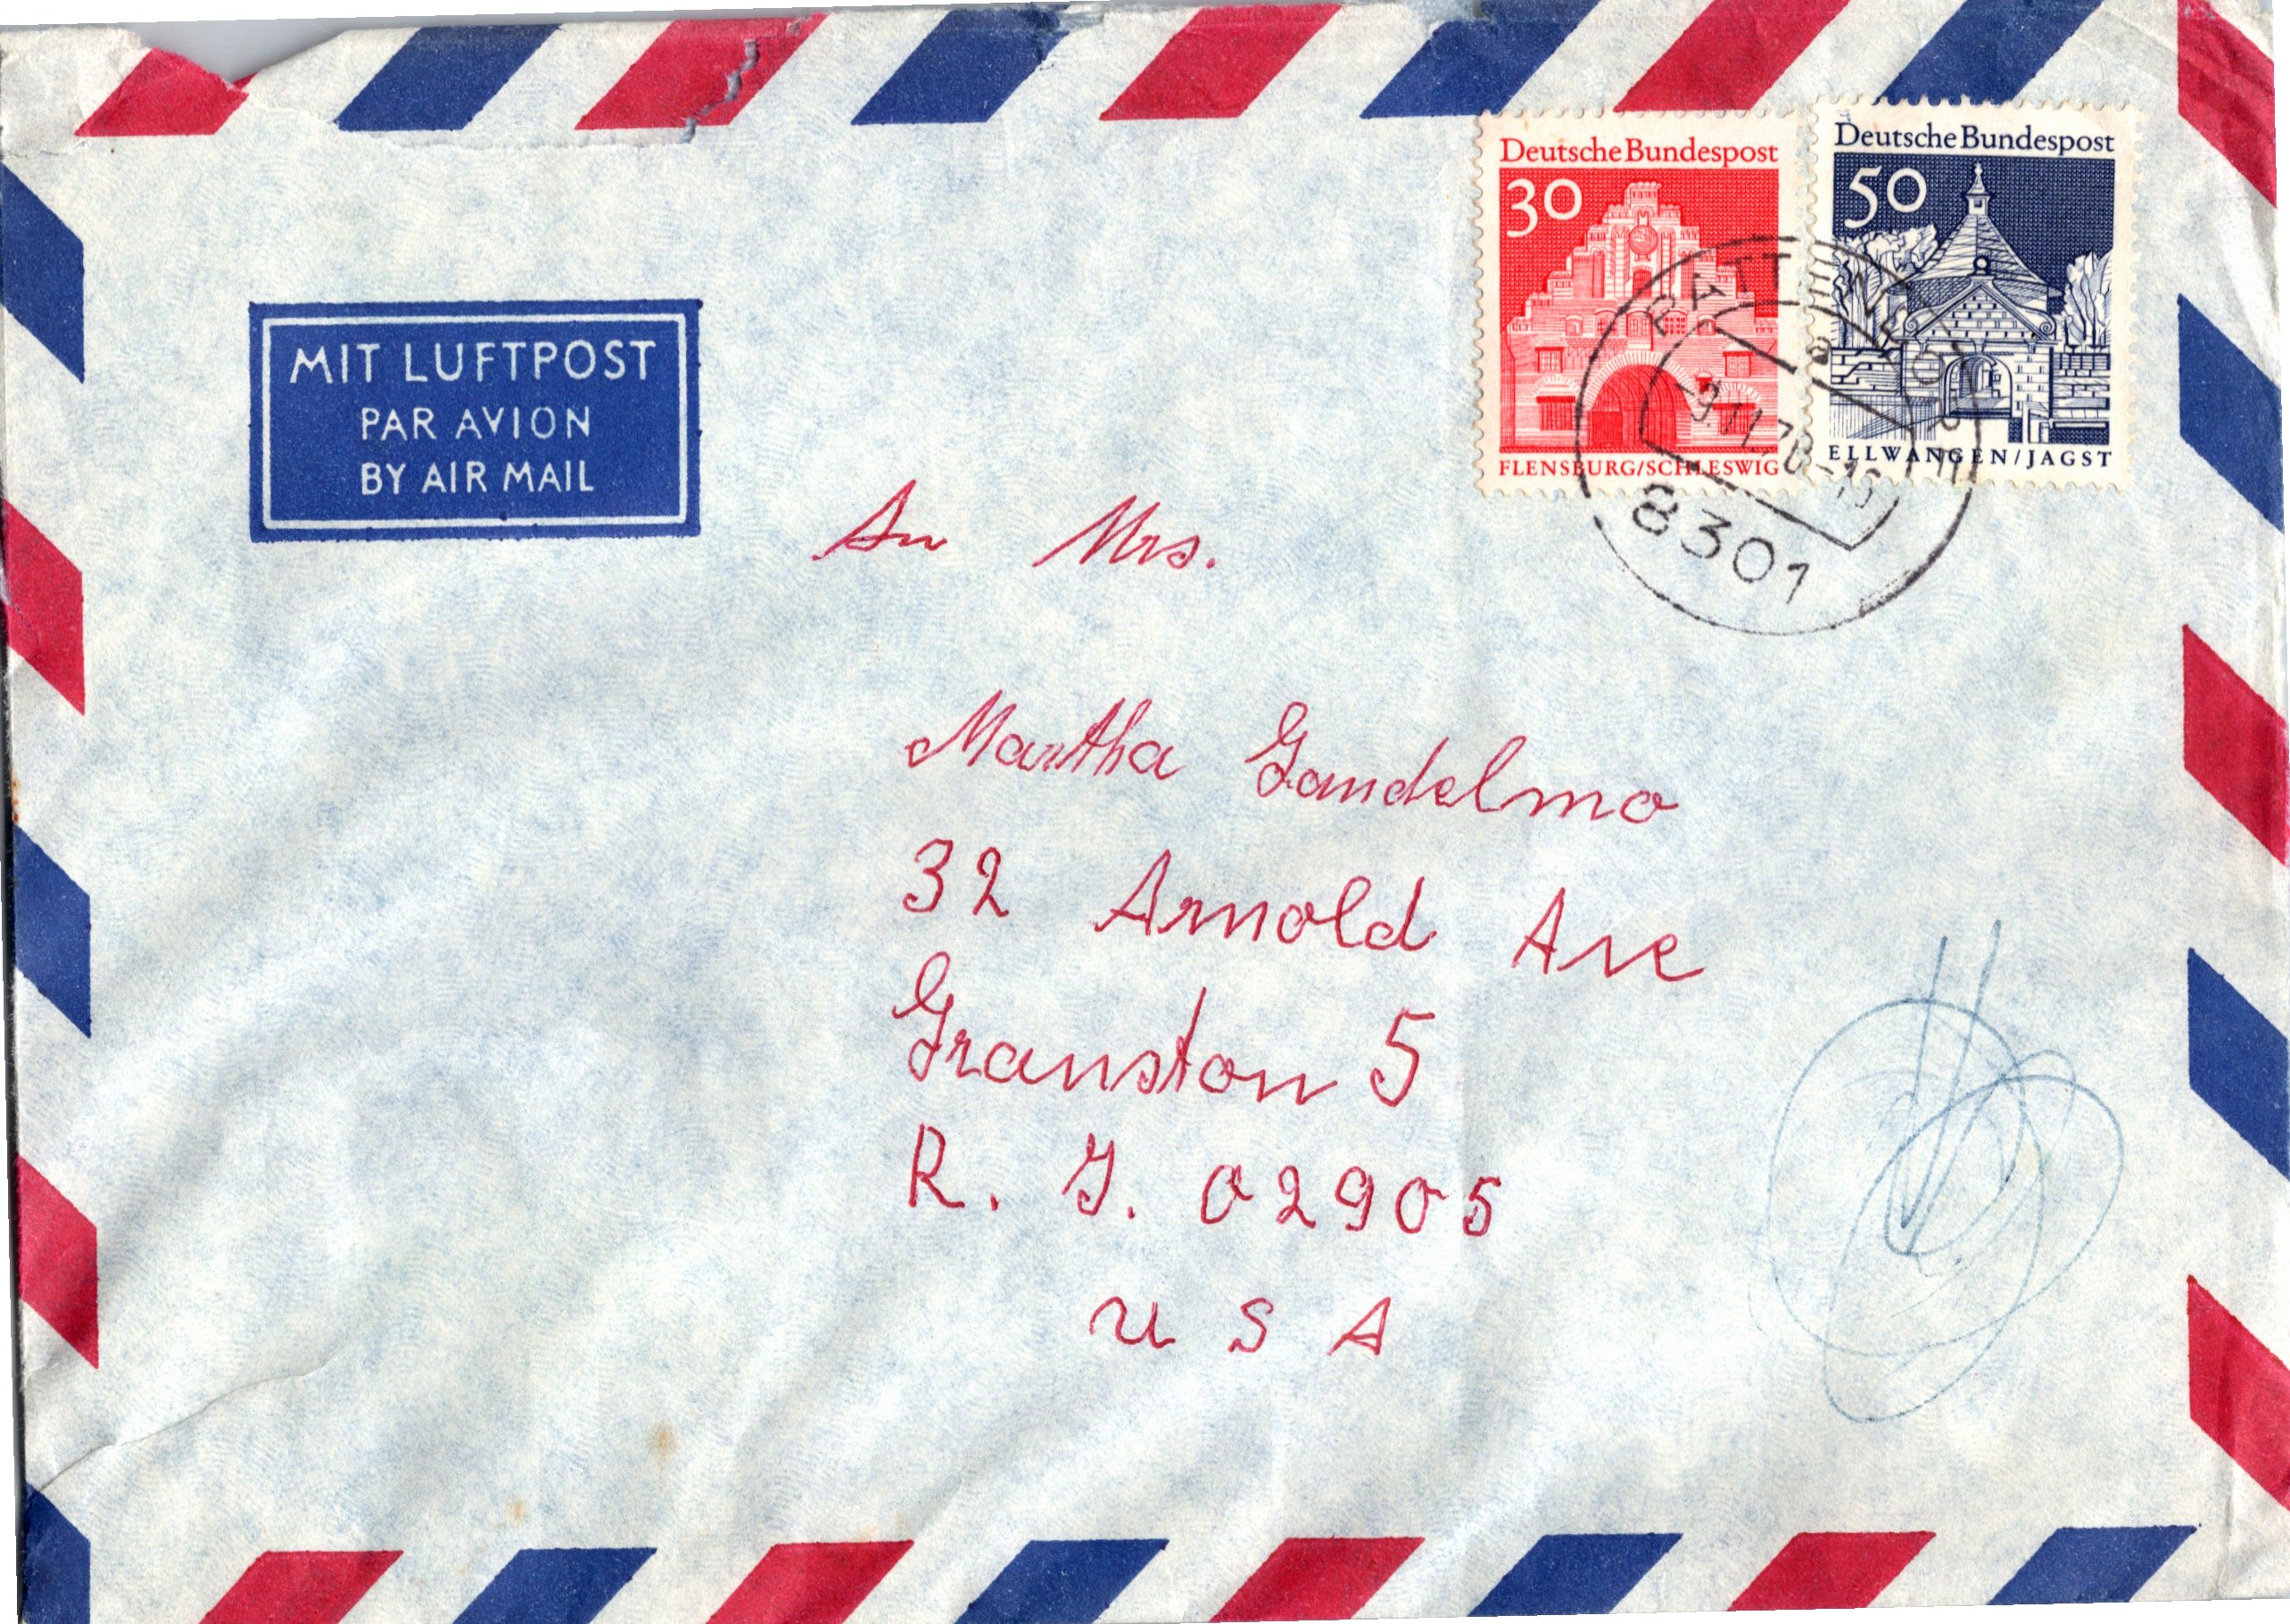 Deutsche Bundespost
30
FLENSBURG/SCHLESWIG
Deutsche Bundespost
50
ELLWANGEN/JAGST
-9.11.70-16
8301
MIT LUFTPOST
PAR AVION
BY AIR MAIL
An Mrs.
Martha Gandelmo
32 Arnold Ave
Granston 5
R. I. 02905
U S A